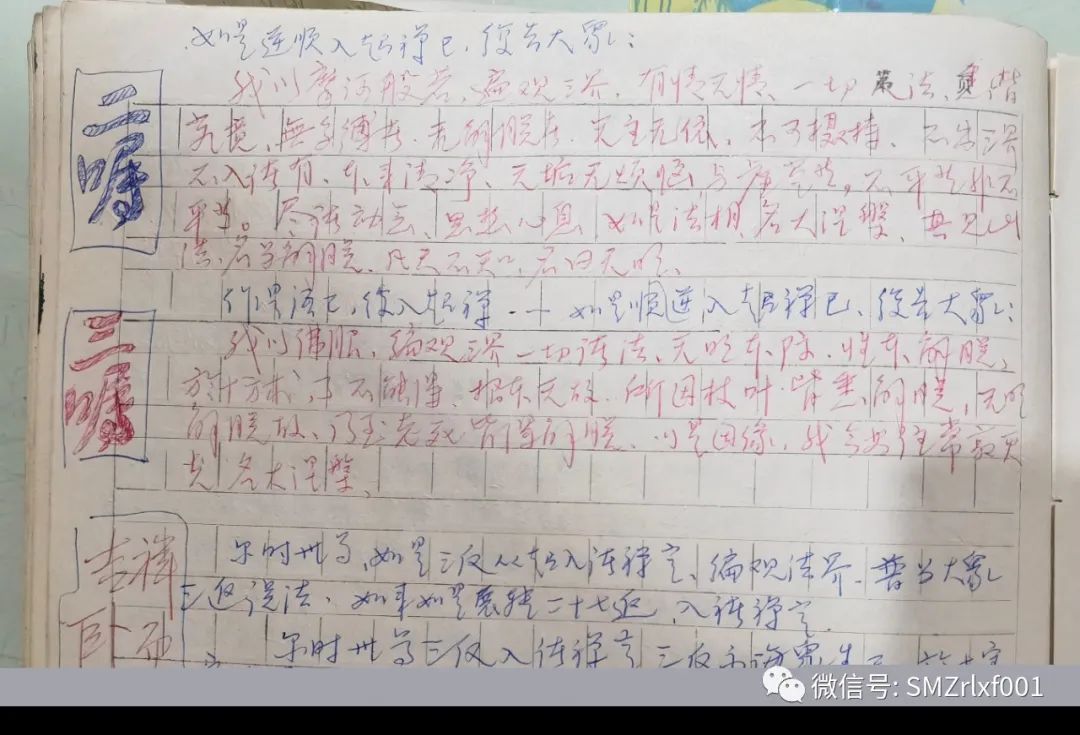 如是逆顺入超禅已,復告大眾:
二嘱
我以摩诃般若、遍观三界、有情无情、一切 法、皆
究竟、無系缚者、无解脱者、无主无依、不可摄持、不出三界
不入诸有、本来清净、无垢无烦恼、与虚空等,不平等非不
平等。尽诸动念、思想心息、如是法相、名大涅槃、真见此
法、名为解脱、凡夫不知、名曰无明、
作是语已,復入超禅、— 如是顺逆入超禅已、復告大眾:
三嘱
我以佛眼、徧观三界一切诸法、无明本际、性本解脱、
於十方求,了不能得、根本无故、所因枝叶皆悉解脱,无明
解脱故、乃至老死皆得解脱、以是因缘,我今安住常寂灭
光名大涅槃、
吉祥
尔时世尊,如是三反 入诸禅定、徧观法界、普为大眾
三返说法、如来如是展转二十七返,入诸禅定
卧
尔时世尊三反入诸禅定 三反
微信号: SMZrlxf001